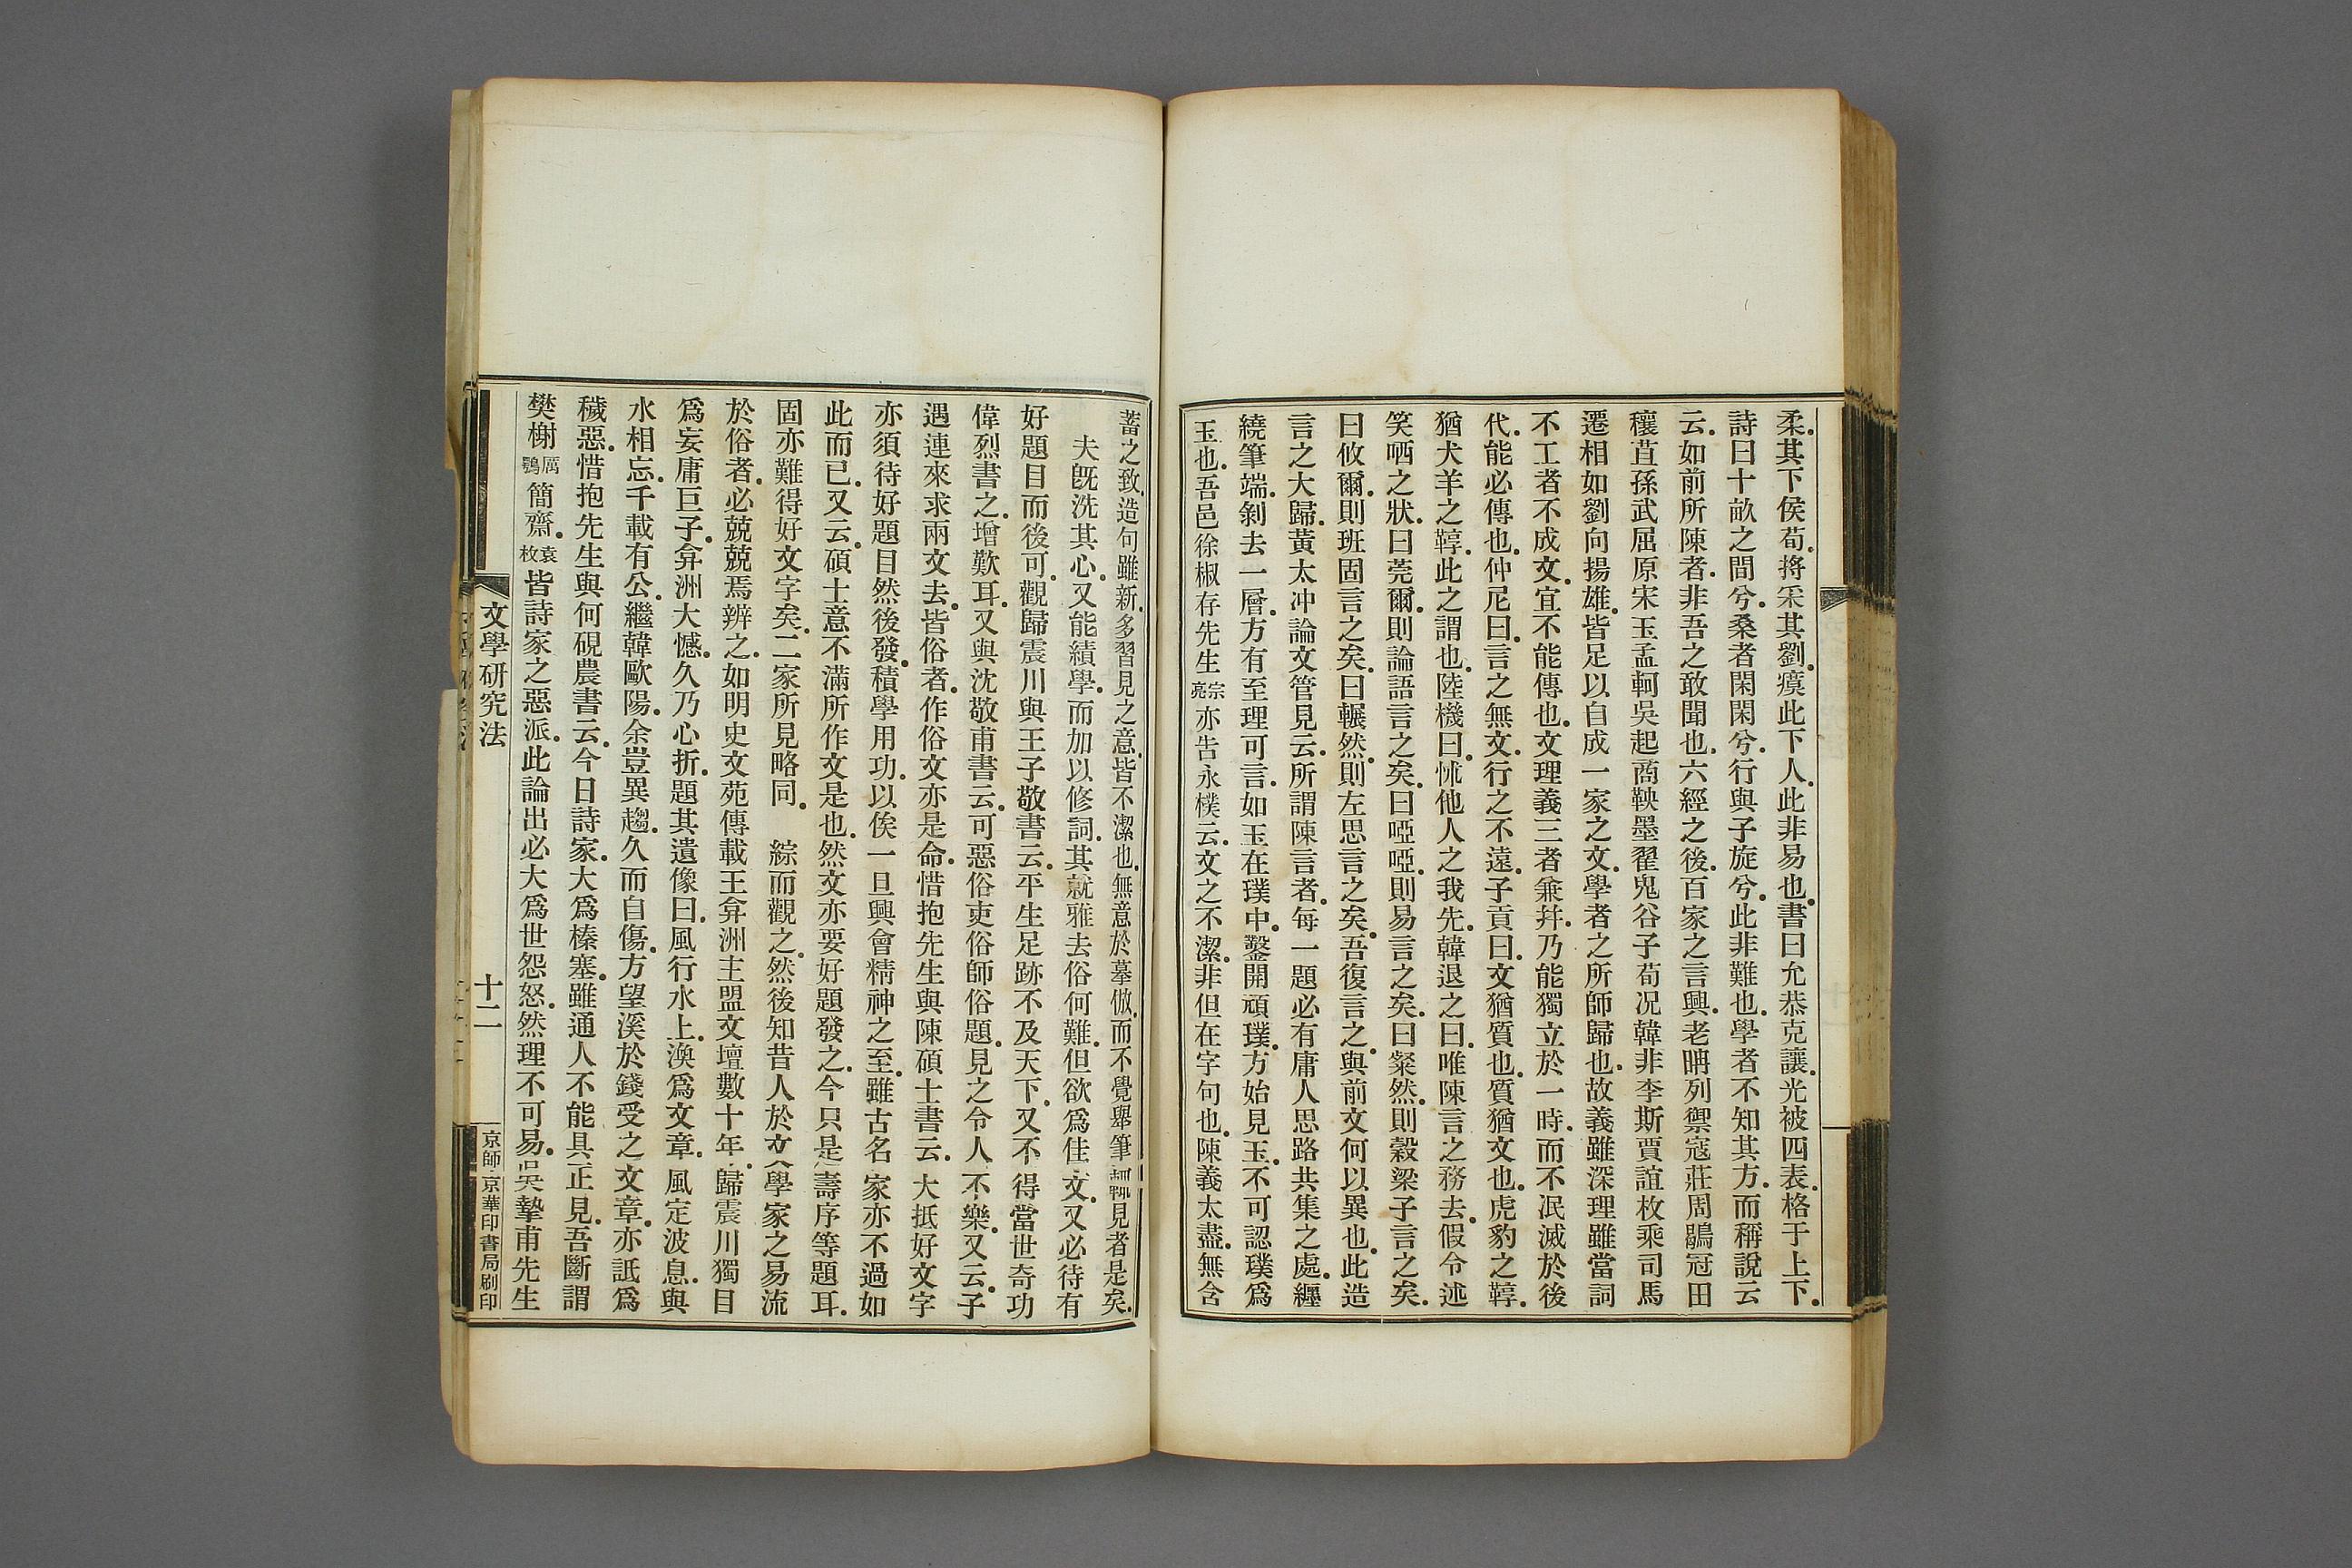 柔。其下侯荀。將采其劉。瘼此下人。此非易也。書曰允恭克讓。光被四表。格于上下。
詩曰十畝之間兮。桑者閑閑兮。行與子旋兮。此非難也。學者不知其方。而稱說云
云。如前所陳者。非吾之敢聞也。六經之後。百家之言興。老聃列禦寇莊周鶡冠田
穰苴孫武屈原宋玉孟軻吳起商鞅墨翟鬼谷子荀况韓非李斯賈誼枚乘司馬
遷相如劉向揚雄。皆足以自成一家之文。學者之所師歸也。故義雖深理雖當詞
不工者不成文。宜不能傳也。文理義三者兼并。乃能獨立於一時。而不泯滅於後
代。能必傳也。仲尼曰。言之無文。行之不遠。子貢曰。文猶質也。質猶文也。虎豹之鞹。
猶犬羊之鞹。此之謂也。陸機曰。怵他人之我先。韓退之曰。唯陳言之務去。假令述
笑哂之狀。曰莞爾。則論語言之矣。曰啞啞。則易言之矣。曰粲然。則穀梁子言之矣。
曰攸爾。則班固言之矣。曰輾然。則左思言之矣。吾復言之。與前文何以異也。此造
言之大歸。黃太冲論文管見云。所謂陳言者。每一題必有庸人思路共集之處。纏
繞筆端。剝去一層。方有至理可言。如玉在璞中。鑿開頑璞。方始見玉。不可認璞爲
玉也。吾邑徐椒存先生宗亮亦告永樸云。文之不潔。非但在字句也。陳義太盡。無含
蓄之致。造句雖新。多習見之意。皆不潔也。無意於摹倣。而不覺舉筆輒見者是矣。
夫既洗其心。又能績學。而加以修詞。其就雅去俗何難。但欲爲佳文。又必待有
好題目而後可。觀歸震川與王子敬書云。平生足跡不及天下。又不得當世奇功
偉烈書之。增歎耳。又與沈敬甫書云。可惡俗吏俗師俗題。見之令人不樂。又云。子
遇連來求兩文去。皆俗者。作俗文亦是命。惜抱先生與陳碩士書云。大抵好文字
亦須待好題目然後發。積學用功。以俟一旦興會精神之至。雖古名家亦不過如
此而已。又云。碩士意不滿所作文是也。然文亦要好題發之。今只是壽序等題耳。
固亦難得好文字矣。二家所見略同。　綜而觀之。然後知昔人於文學家之易流
於俗者。必兢兢焉辨之。如明史文苑傳載王弇洲主盟文壇數十年。歸震川獨目
爲妄庸巨子。弇洲大憾。久乃心折。題其遺像曰。風行水上。渙爲文章。風定波息。與
水相忘。千載有公。繼韓歐陽。余豈異趨。久而自傷。方望溪於錢受之文章。亦詆爲
穢惡。惜抱先生與何硯農書云。今日詩家。大爲榛塞。雖通人不能具正見。吾斷謂
樊榭厲鶚簡齋。袁枚皆詩家之惡派。此論出必大爲世怨怒。然理不可易。吳摯甫先生
文學研究法
十二
京師京華印書局刷印